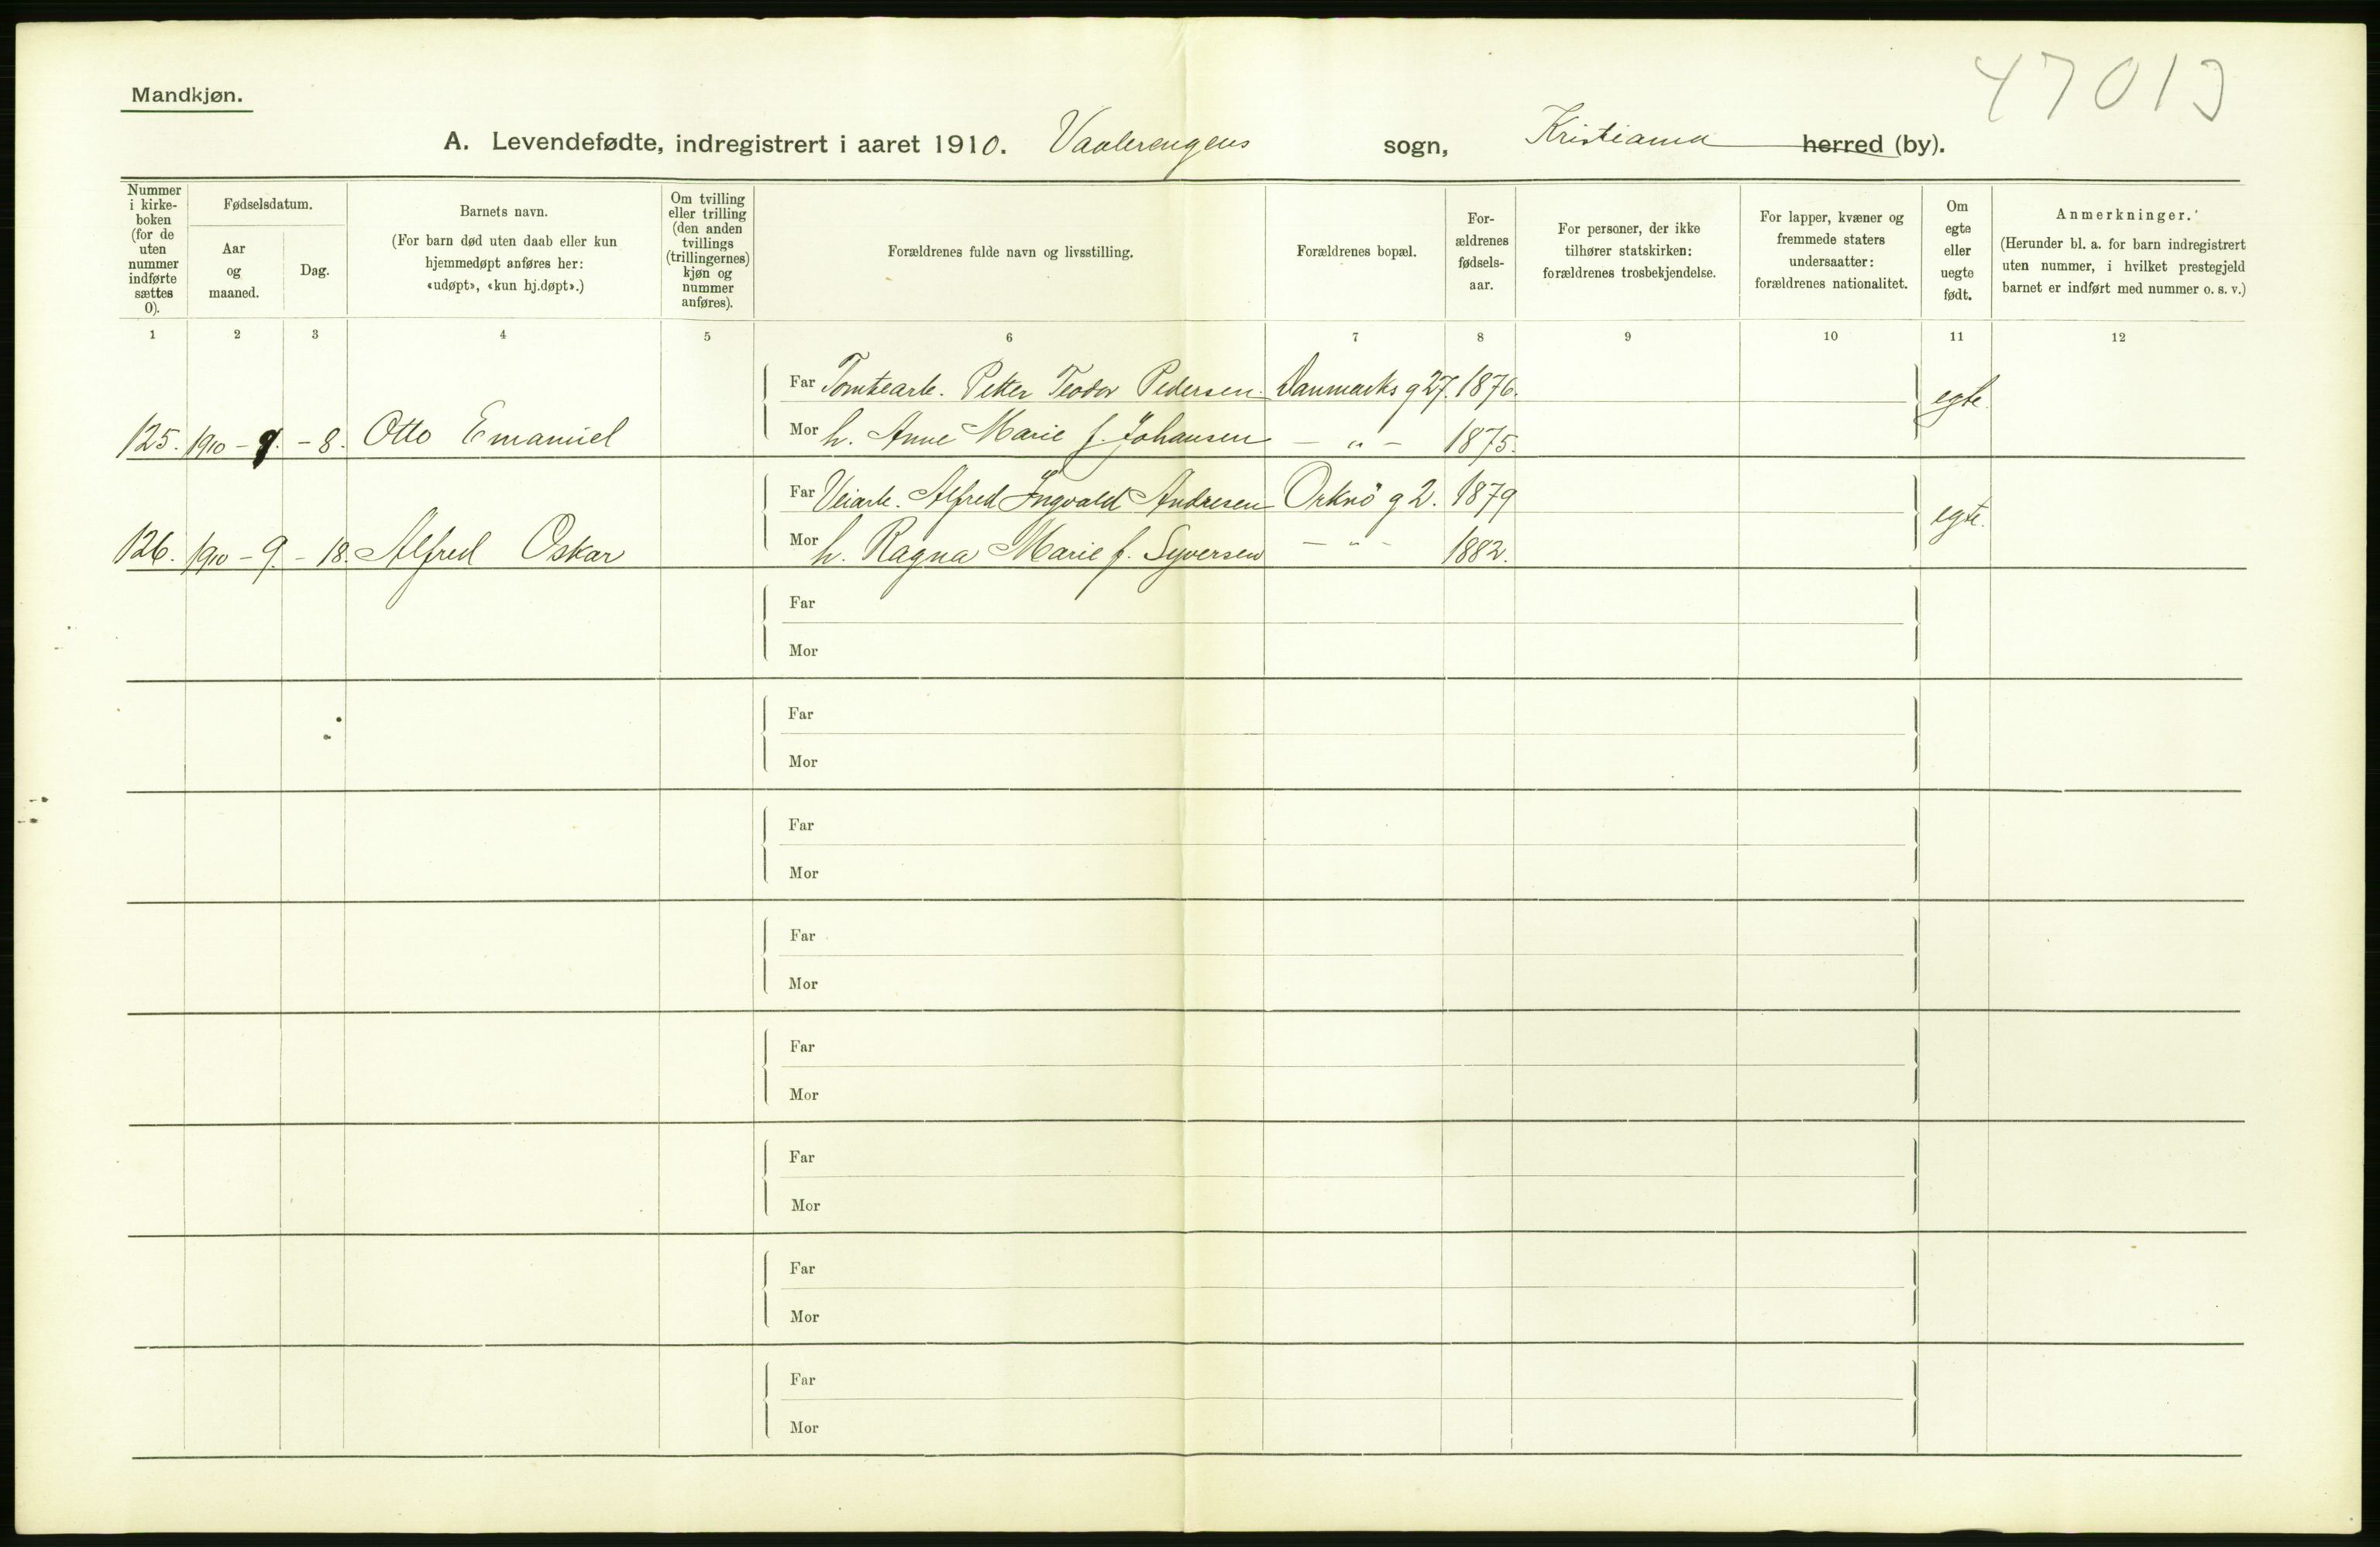 47013
Mandkjøn.
A. Levendefødte, indregistrert i aaret 1910. Vaalerengens sogn, Kristiania herred (by).
Nummer
i kirke-
boken
(for de
uten
nummer
indførte
sættes
0).
Fødselsdatum.
Aar
og
maaned.
Dag.
Barnets navn.
(For barn død uten daab eller kun
hjemmedøpt anføres her:
«udøpt», «kun hj.døpt».)
Om tvilling
eller trilling
(den anden
tvillings
(trillingernes)
kjøn og
nummer
anføres).
Forældrenes fulde navn og livsstilling.
Forældrenes bopæl.
For-
ældrenes
fødsels-
aar.
For personer, der ikke
tilhører statskirken:
forældrenes trosbekjendelse.
For lapper, kvæner og
fremmede staters
undersaatter:
forældrenes nationalitet.
Om
egte
eller
uegte
født.
Anmerkninger.
(Herunder bl. a. for barn indregistrert
uten nummer, i hvilket prestegjeld
barnet er indført med nummer o. s. v.)
1 2 3 4 5 6 7 8 9 10 11 12
Far Tomtearb. Petter Teodor Pedersen. Danmarks g 27. 1876. egte.
125. 1910 - 9. - 8. Otto Emanuel Mor h. Anne Marie f. Johansen - " - 1875.
Far Veiarb. Alfred Ingvald Andresen Orknö g 2. 1879 egte.
126. 1910 - 9. - 18. Alfred Oskar Mor h. Ragna Marie f. Syversen - " - 1882.
Far
Mor
Far
Mor
Far
Mor
Far
Mor
Far
Mor
Far
Mor
Far
Mor
Far
Mor